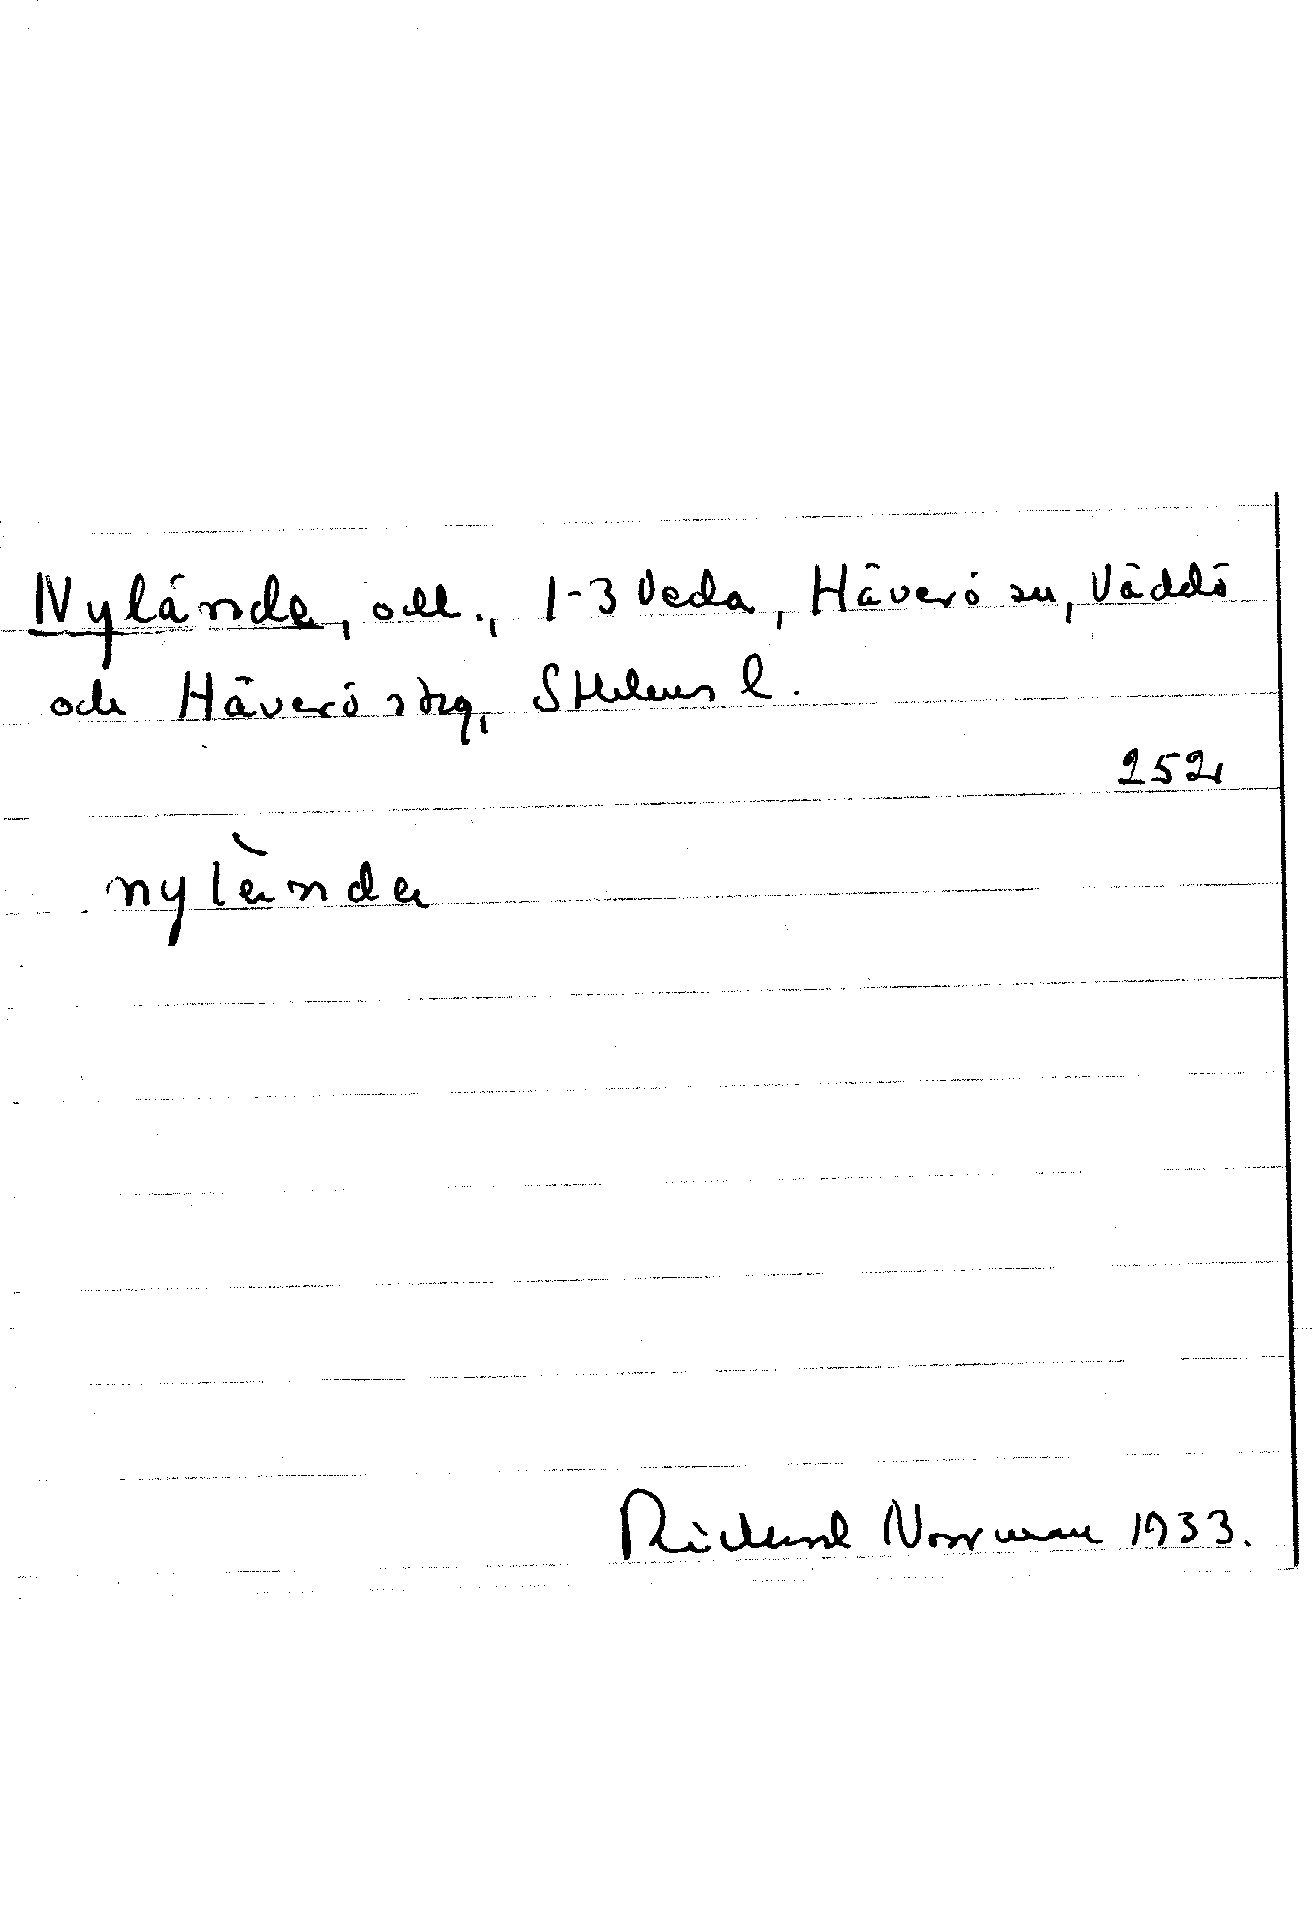 Nylända, odl., 1-3 Veda, Häverö sn, Väddö
och Häverö skg, Sthlms l.
252
nylända
Rickard Norrman 1933.